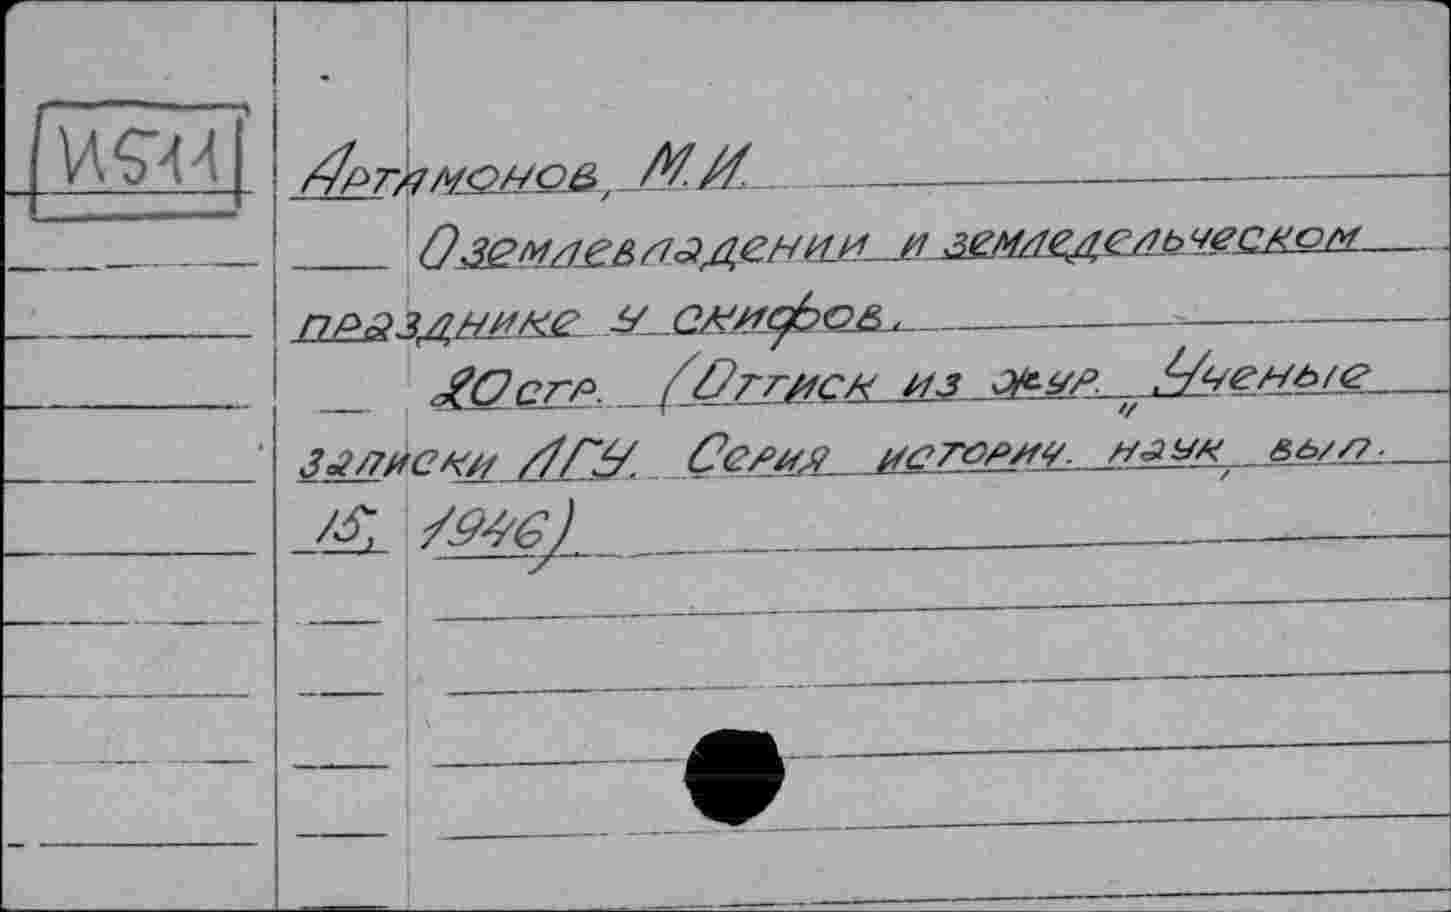 И511
Артамонов, М.И.
О землевладении и земледельческом
празднике у скифов.
20 стр. (Оттиск из жур. „Ученые
записки ЛГУ. Серия историч. наук, вып.
15, 1946)